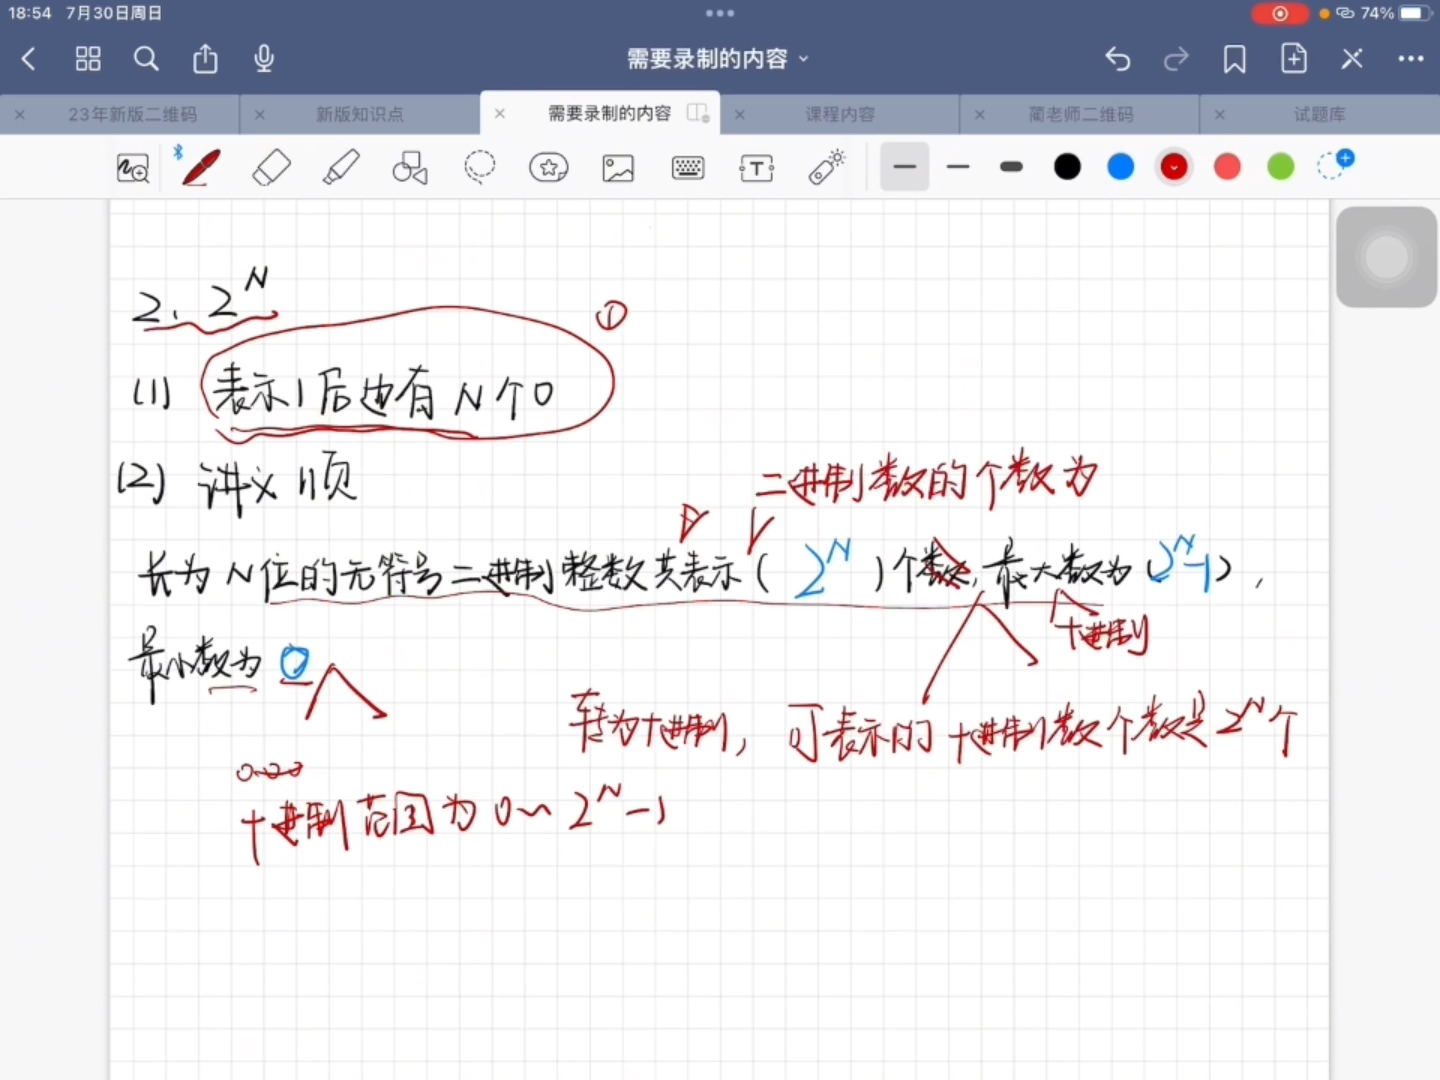 18:54 7月30日周日
74%
需要录制的内容
23年新版二维码
新版知识点
需要录制的内容
课程内容
蔺老师二维码
试题库
2、2^N
①
(1) 表示1后边有N个0
(2) 讲义11页
二进制数的个数为
长为N位的无符号二进制整数共表示(2^N)个数,最大数为(2^N-1),
十进制
最小数为0
转为十进制,可表示的十进制数个数是2^N个
0000
十进制范围为0~2^N-1